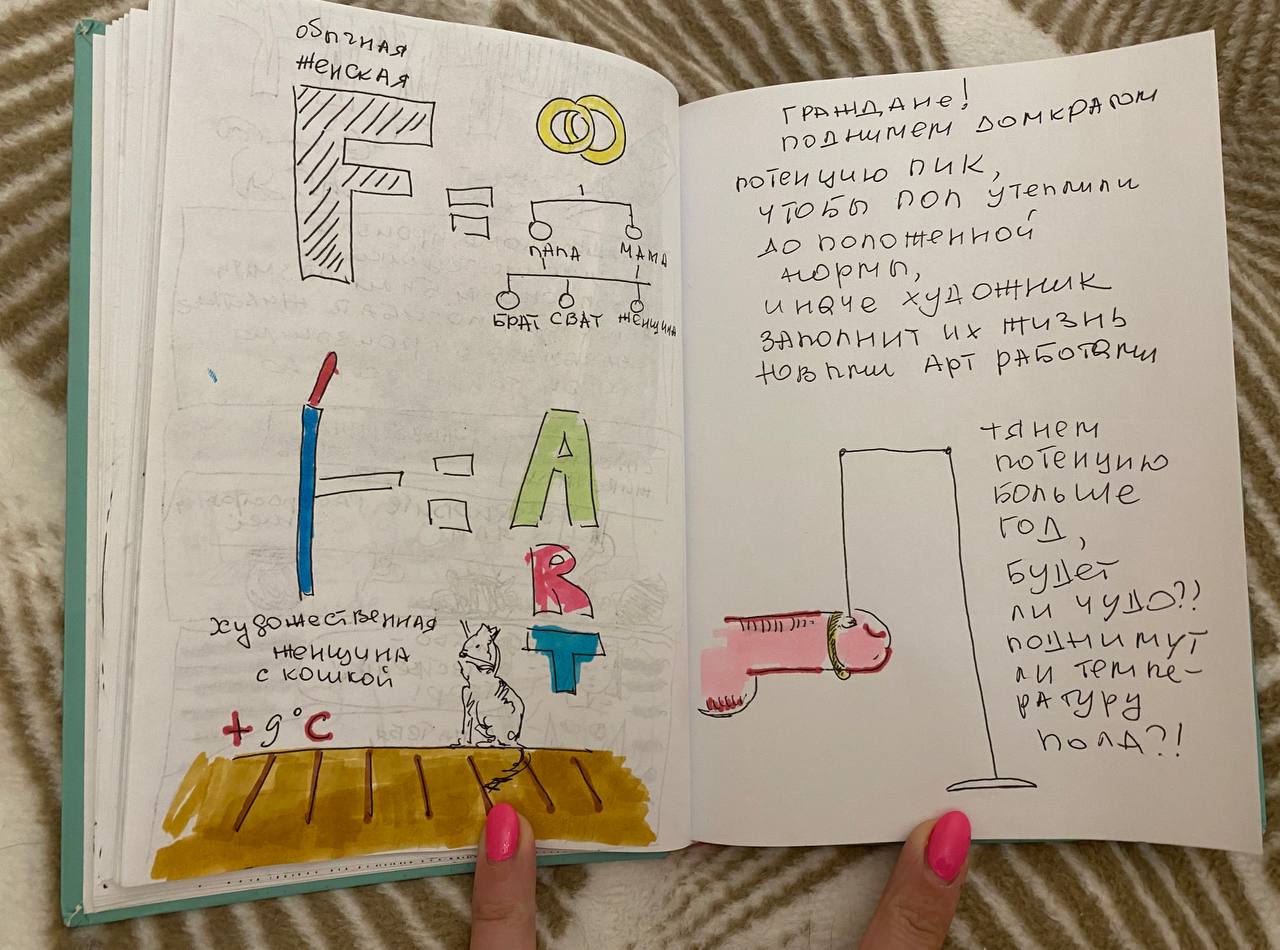 обычная
женская
F
=
ПАПА МАМА
БРАТ СВАТ ЖЕНЩИНА
=
A
R
T
художественная
женщина
с кошкой
+9°C
ГРАЖДАНЕ!
ПОДНИМЕМ ДОМКРАТОМ
ПОТЕНЦИЮ ПИК,
ЧТОБЫ ПОЛ УТЕПЛИЛИ
ДО ПОЛОЖЕННОЙ
НОРМЫ,
ИНАЧЕ ХУДОЖНИК
ЗАПОЛНИТ ИХ ЖИЗНЬ
НОВЫМИ АРТ РАБОТАМИ
ТЯНЕМ
ПОТЕНЦИЮ
БОЛЬШЕ
ГОД,
БУДЕТ
ЛИ ЧУДО??
ПОДНИМУТ
ЛИ ТЕМПЕ-
РАТУРУ
ПОЛА?!